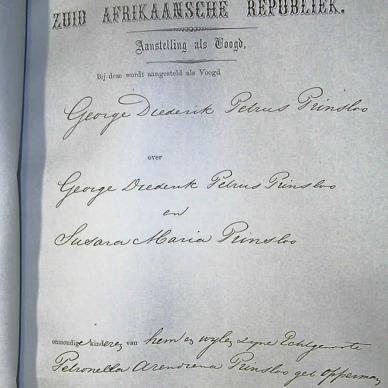 ZUID AFRIKAANSCHE REPUBLIEK.
Aanstelling als Voogd,
Bij deze wordt aangesteld als Voogd
George Diederik Petrus Prinsloo
over
George Diederik Petrus Prinsloo
en
Susara Maria Prinsloo
onmondige kinderen van hem en wylen zyne Echtgenoote
Petronella Arendrena Prinsloo geb Opperman